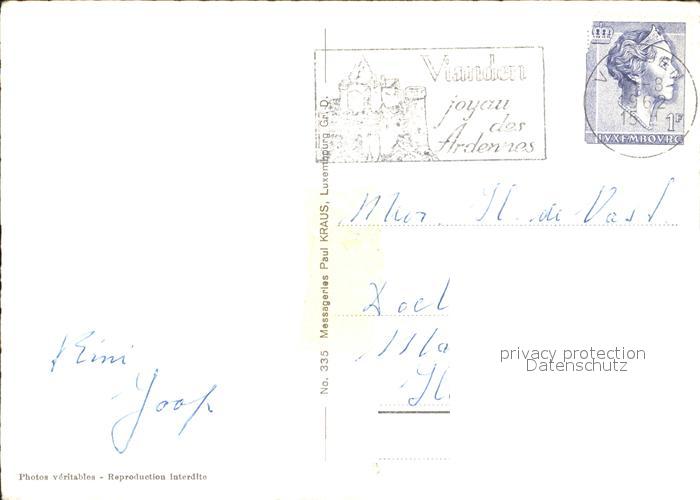 Vianden
joyau
des
Ardennes
1F
LUXEMBOURG
No. 335 Messageries Paul KRAUS, Luxembourg Gr.-D.
H. de Vast
privacy protection
Datenschutz
Rini
Joop
Photos véritables - Reproduction interdite